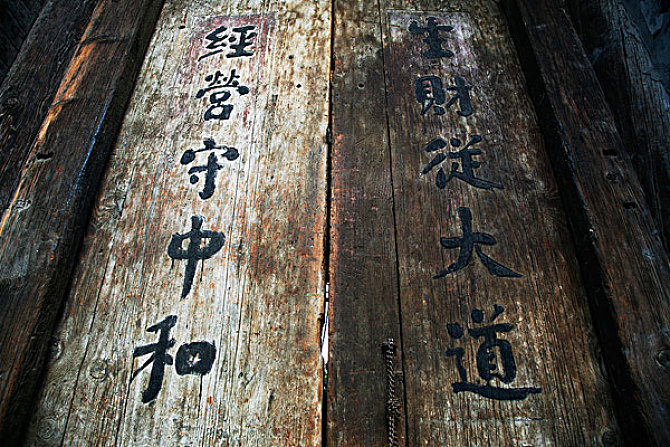 生財從大道
經營守中和